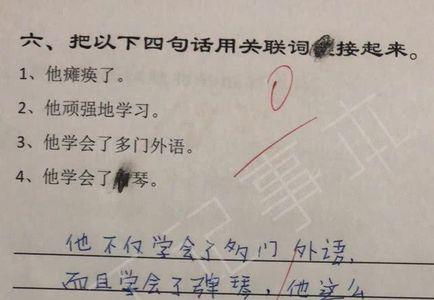 六、把以下四句话用关联词接起来。
1、他瘫痪了。
2、他顽强地学习。
3、他学会了多门外语。
4、他学会了琴。
他不仅学会了多门外语,
而且学会了弹琴,他这么
记事本